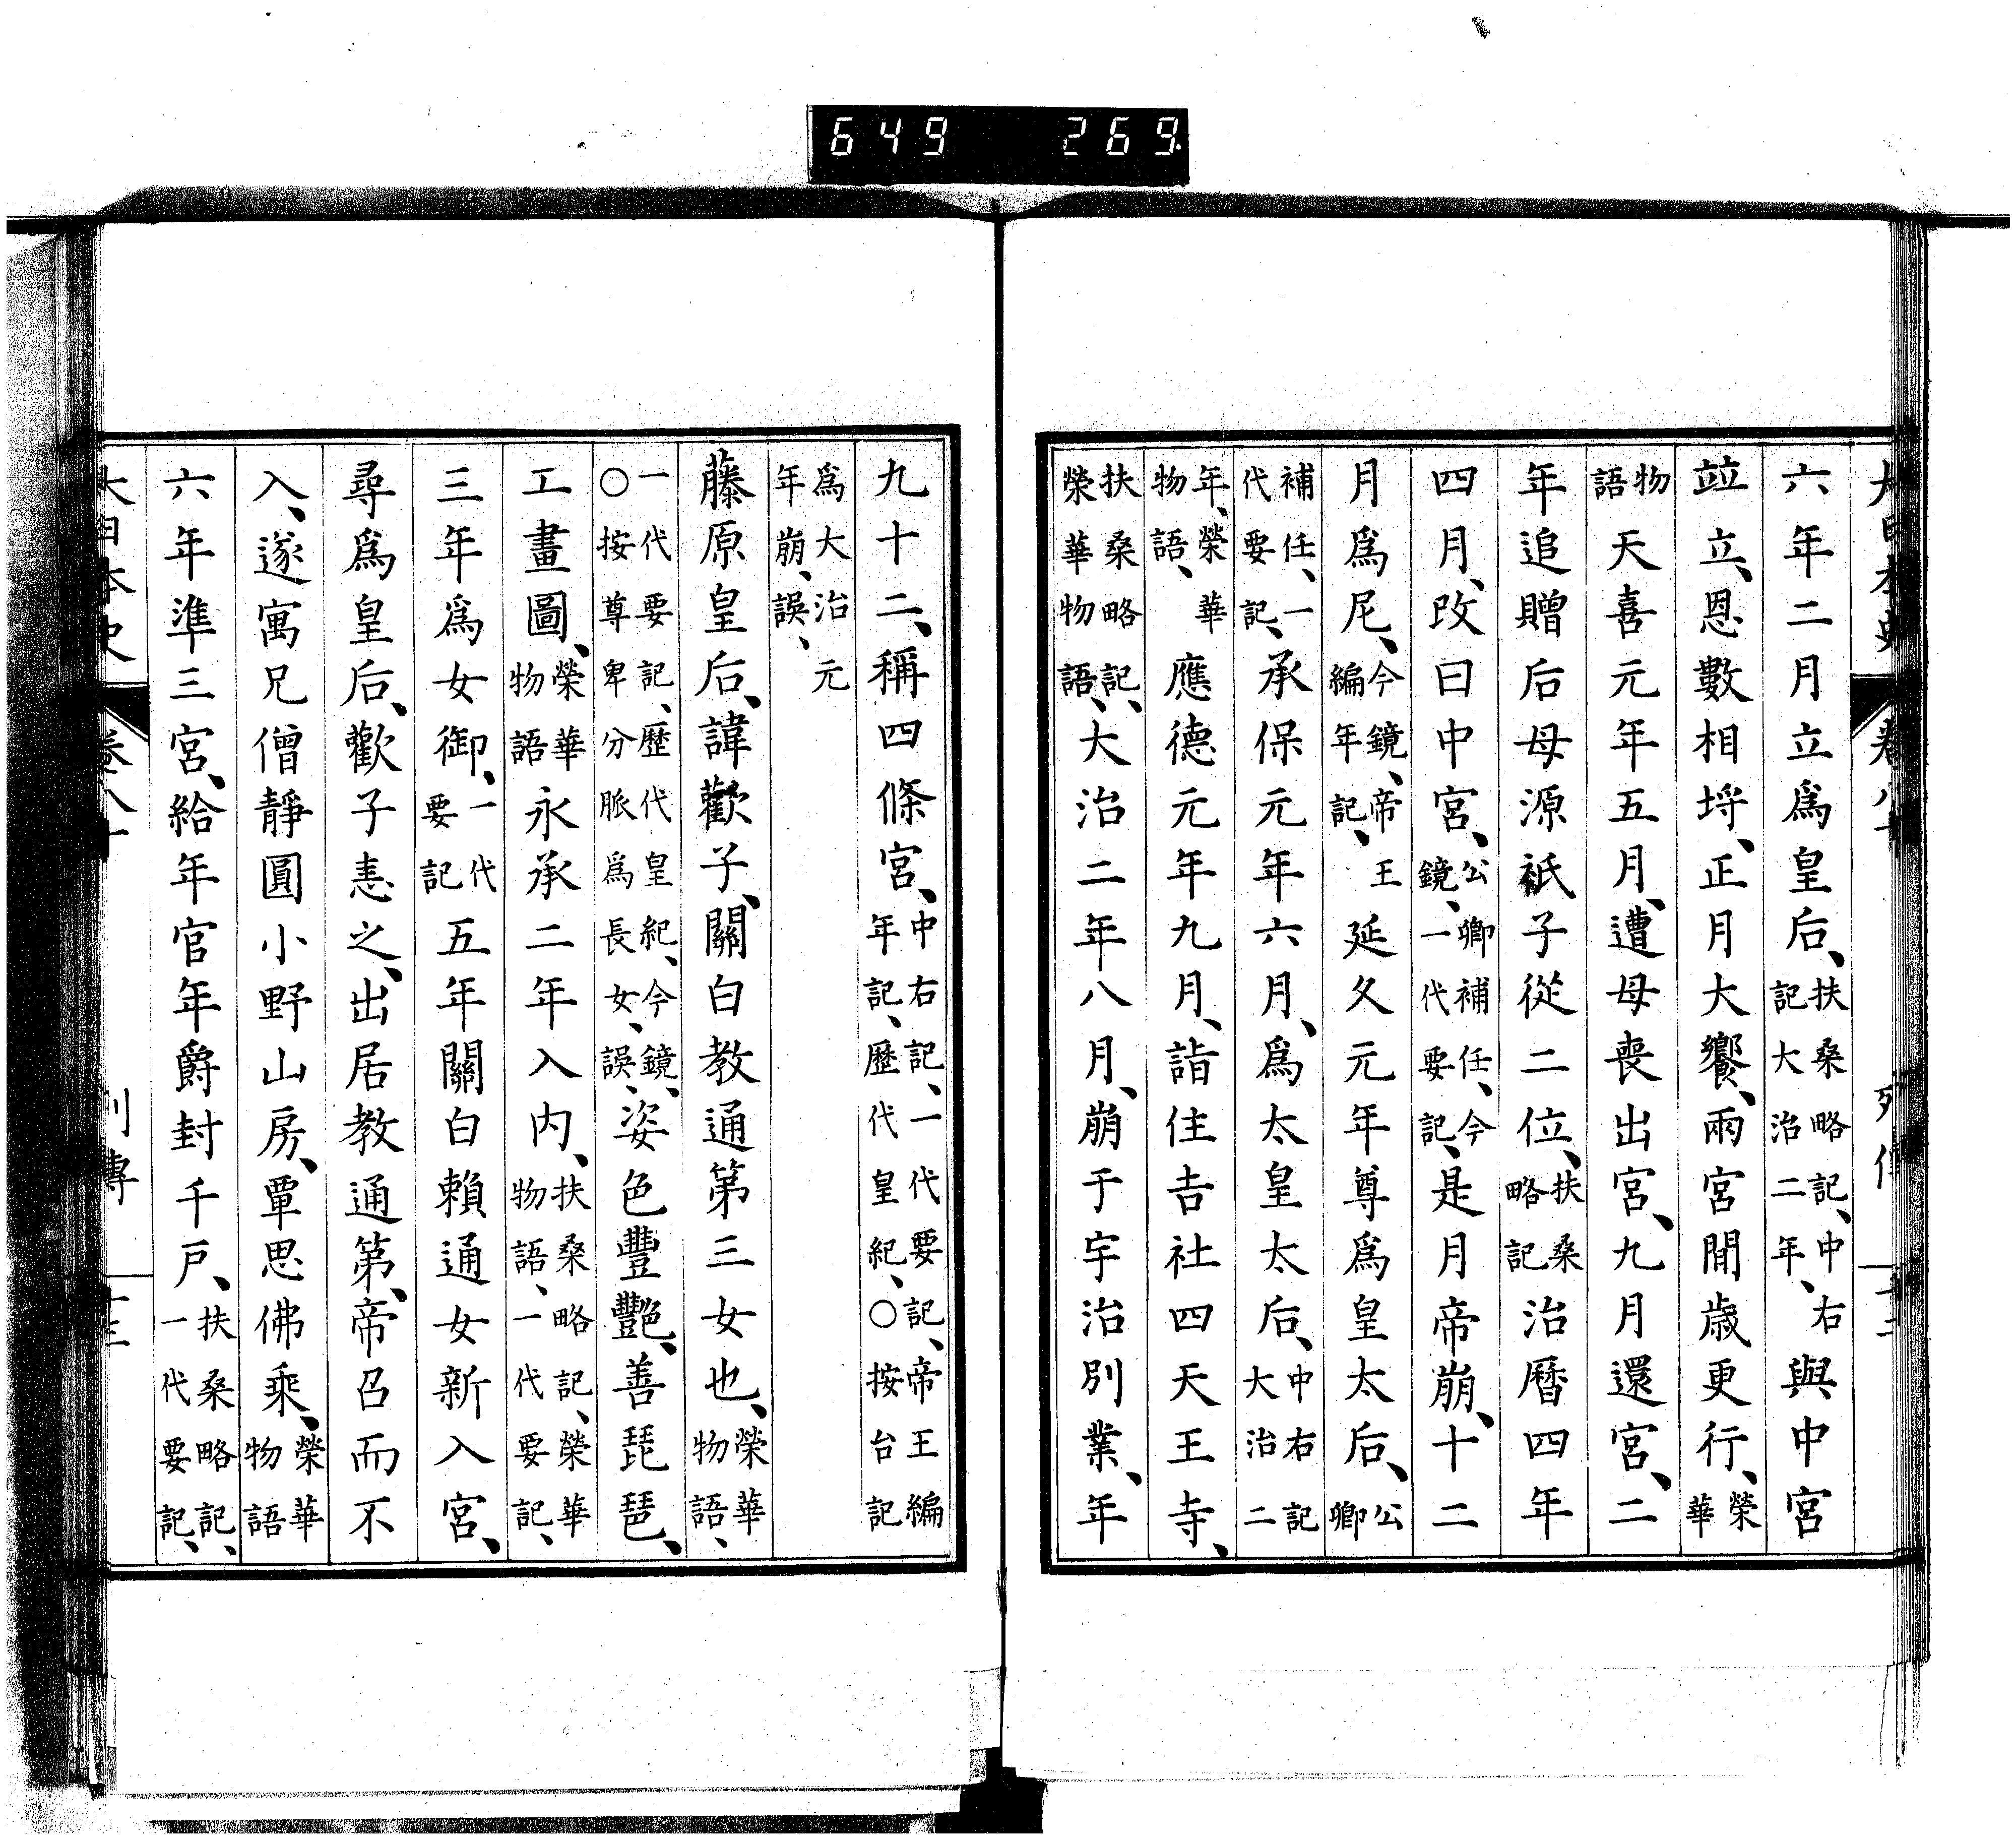 649 269
大日本史 卷八十 列傳
六年二月立爲皇后、扶桑略記、中右記大治二年、與中宮
竝立、恩數相埒、正月大饗、兩宮閒歲更行、榮華
物語天喜元年五月、遭母喪出宮、九月還宮、二
年追贈后母源祇子從二位、扶桑略記治曆四年
四月、改曰中宮、公卿補任、今鏡、一代要記、是月帝崩、十二
月爲尼、今鏡、帝王編年記、延久元年尊爲皇太后、公卿
補任、一代要記、承保元年六月、爲太皇太后、中右記大治二
年、榮華物語、應德元年九月、詣住吉社四天王寺、
扶桑略記、榮華物語、大治二年八月、崩于宇治別業、年
九十二、稱四條宮、中右記、一代要記、帝王編年記、歷代皇紀、○按台記
爲大治元年崩、誤、
藤原皇后、諱歡子、關白教通第三女也、榮華物語、
一代要記、歷代皇紀、今鏡、○按尊卑分脈爲長女、誤、姿色豐艷、善琵琶、
工畫圖、榮華物語永承二年入內、扶桑略記、榮華物語、一代要記、
三年爲女御、一代要記五年關白賴通女新入宮、
尋爲皇后、歡子恚之、出居教通第、帝召而不
入、遂寓兄僧靜圓小野山房、覃思佛乘、榮華物語
六年準三宮、給年官年爵封千戶、扶桑略記、一代要記、
大日本史 卷八十 列傳 十三